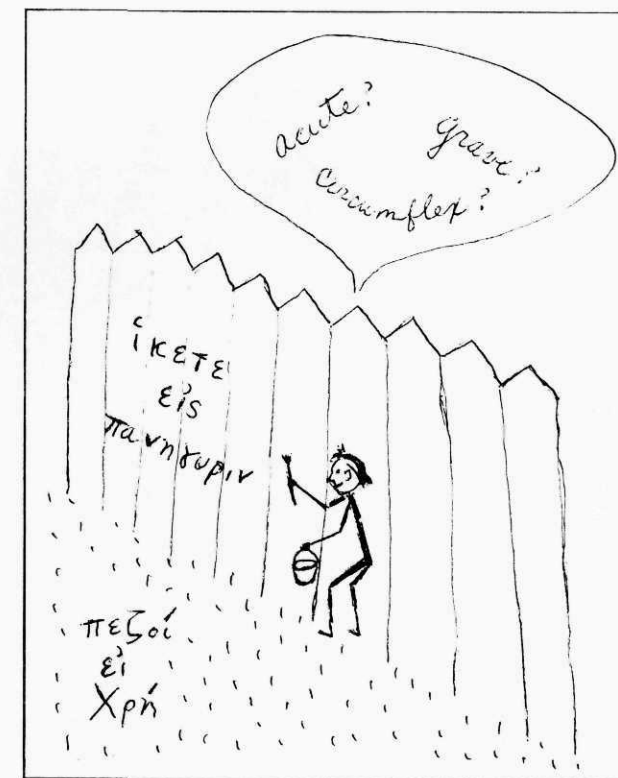 acute?
grave?
circumflex?
ἱκετε
εἰς
πανηγυριν
πεζοί
εἰ
Χρή